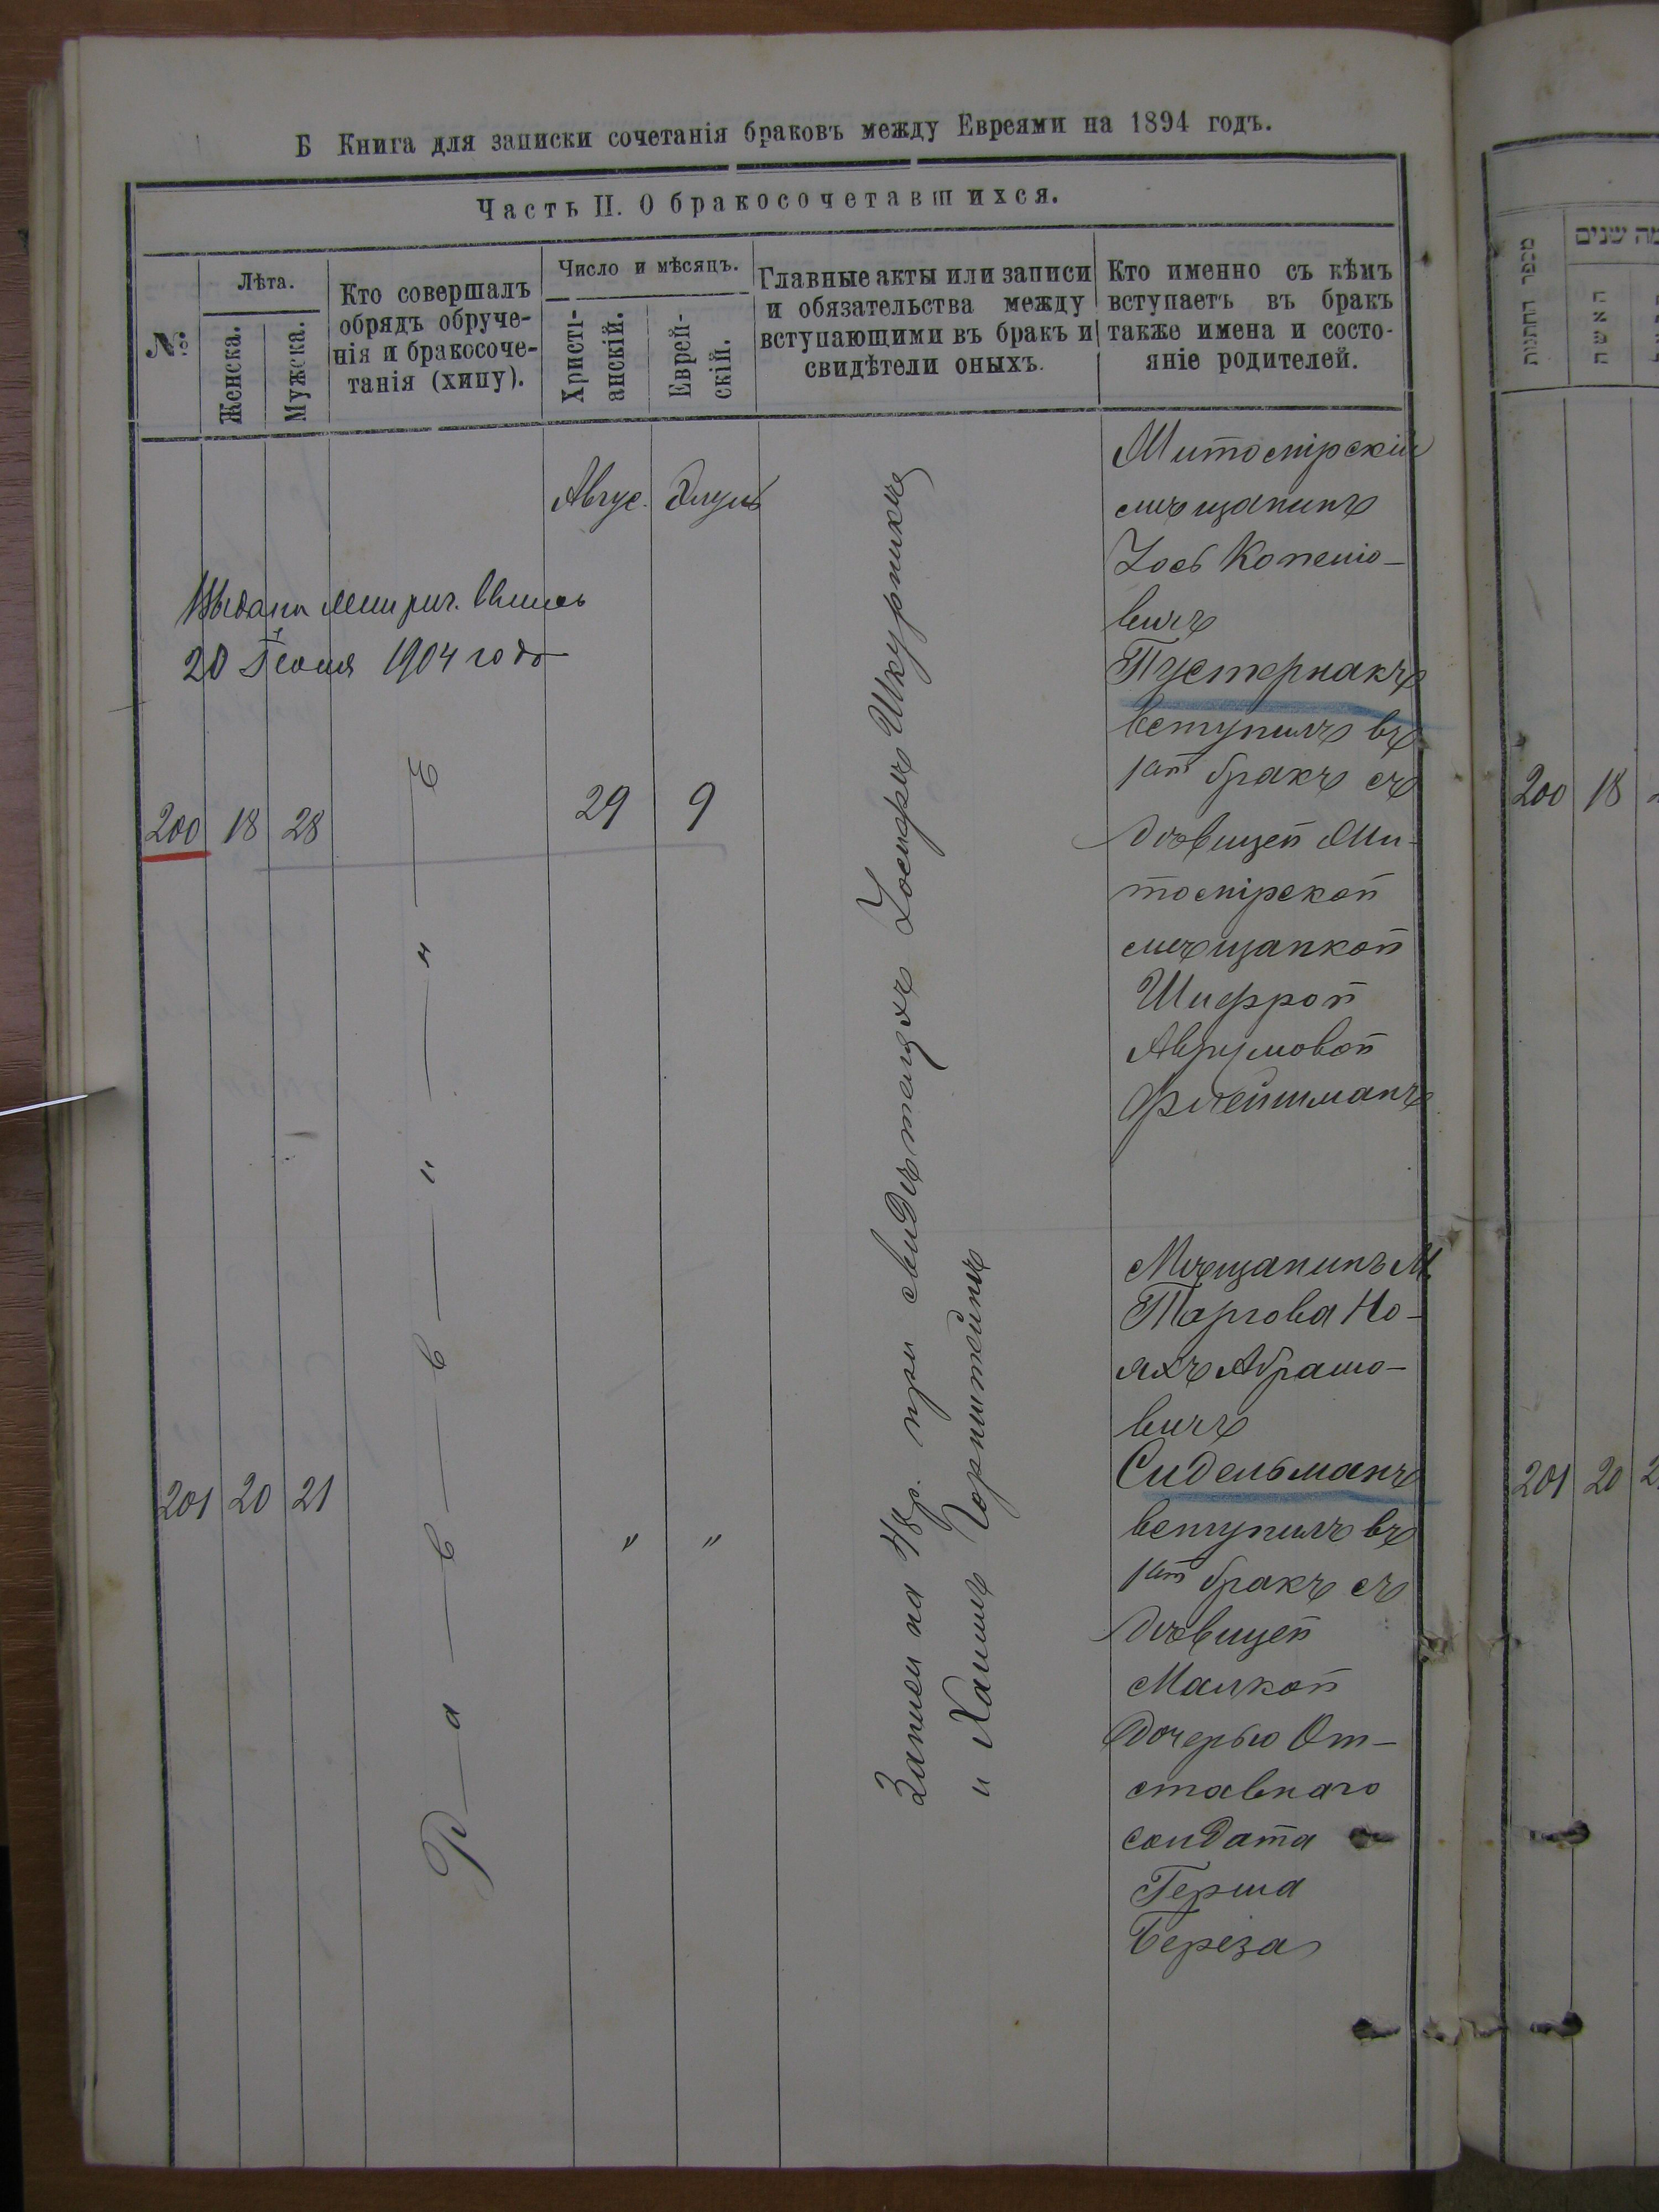 Б Книга для записки сочетанія браковъ между Евреями на 1894 годъ.
Часть II. О бракосочетавшихся.
№
Лѣта.
Женска.
Мужска.
Кто совершалъ
обрядъ обруче-
нія и бракосоче-
танія (хипу).
Число и мѣсяцъ.
Христі-
анскій.
Еврей-
скій.
Главные акты или записи
и обязательства между
вступающими въ бракъ и
свидѣтели оныхъ.
Кто именно съ кѣмъ
вступаетъ въ бракъ
также имена и состо-
яніе родителей.
Авгус. Элулъ
Выдана метрич. выпись
20 Іюня 1904 года
200 18 28
29 9
Р—а—в—в—"—"—Ъ
Запись на 48р. при свидѣтеляхъ Іосифѣ Шкурникѣ
и Хаимѣ Горнштейнѣ
Житомірскій
мѣщанинъ
Іось Копелио-
вичъ
Пустернакъ
вступилъ въ
1ый бракъ съ
дѣвицей Жи-
томірской
мѣщанкой
Шифрой
Аврумовой
Флейшманъ
201 20 21
" "
Мѣщанинъ М.
Таргова Но-
яхъ Абрамо-
вичъ
Сидельманъ
вступилъ въ
1ый бракъ съ
дѣвицей
Малкой
дочерью От-
ставнаго
солдата
Герша
Береза
מספר החתנות
שנים
האשה
200 18
201 20 2